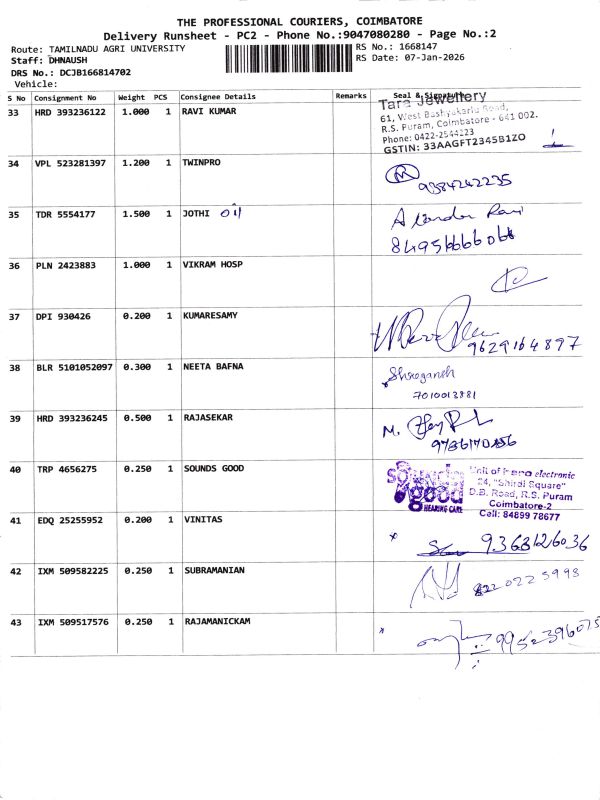 THE PROFESSIONAL COURIERS, COIMBATORE
Delivery Runsheet - PC2 - Phone No.:9047080280 - Page No.:2
Route: TAMILNADU AGRI UNIVERSITY
RS No.: 1668147
Staff: DHNAUSH
RS Date: 07-Jan-2026
DRS No.: DCJB166814702
Vehicle:
S No Consignment No Weight PCS Consignee Details Remarks Seal & Signature
33 HRD 393236122 1.000 1 RAVI KUMAR
Tara Jewellery
61, West Bashyakarlu Road,
R.S. Puram, Coimbatore - 641 002.
Phone: 0422-2544223
GSTIN: 33AAGFT2345B1ZO
34 VPL 523281397 1.200 1 TWINPRO
9384242235
35 TDR 5554177 1.500 1 JOTHI
36 PLN 2423883 1.000 1 VIKRAM HOSP
37 DPI 930426 0.200 1 KUMARESAMY
9629164897
38 BLR 5101052097 0.300 1 NEETA BAFNA
Shreeganesh
7010013881
39 HRD 393236245 0.500 1 RAJASEKAR
M.
40 TRP 4656275 0.250 1 SOUNDS GOOD
Sounds good
HEARING CARE
Unit of electronic
24, "Shirdi Square"
D.B. Road, R.S. Puram
Coimbatore-2
Cell: 84899 78677
41 EDQ 25255952 0.200 1 VINITAS
9363126036
42 IXM 509582225 0.250 1 SUBRAMANIAN
43 IXM 509517576 0.250 1 RAJAMANICKAM
9952396075